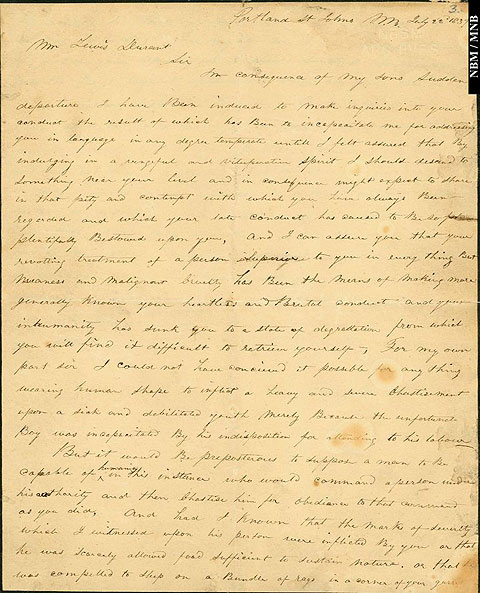 3.
Portland St Johns NB July 22d 1837
NBM / MNB
Mr Lewis Durant
Sir
In consequence of my sons sudden
departure I have Been induced to make inquiries into your
conduct the result of which has Been to incapacitate me for addressing
you in language in any degree temperate until I felt assured that By
indulging in a vengeful and vituperative spirit I should descend to
something near your level and in consequence might expect to share
in that pity and contempt with which you have always Been
regarded and which your late conduct has caused to Be so
plentifully Bestowed upon you, And I can assure you that your
revolting treatment of a person superior to you in every thing But
Meaness and Malignant Cruelty has Been the means of making more
generally known your heartless and Brutal conduct and your
inhumanity has sunk you to a state of degredation from which
you will find it difficult to retrieve yourself, For my own
part sir I could not have concieved it possible for any thing
wearing human shape to inflict a heavy and severe Chastisement
upon a sick and debilitated youth Merely Because the unfortunate
Boy was incapacitated By his indisposition for attending to his labour
But it would Be preposterous to suppose a man to Be
capable of humanity in this instance who would command a person under
his authority and then Chastise him for obedience to that command
as you did, And had I known that the marks of severity
which I witnessed upon his person were inflicted By you or that
he was scarcely allowed food sufficient to sustain nature, or that he
was compelled to sleep on a Bundle of rags in a corner of your